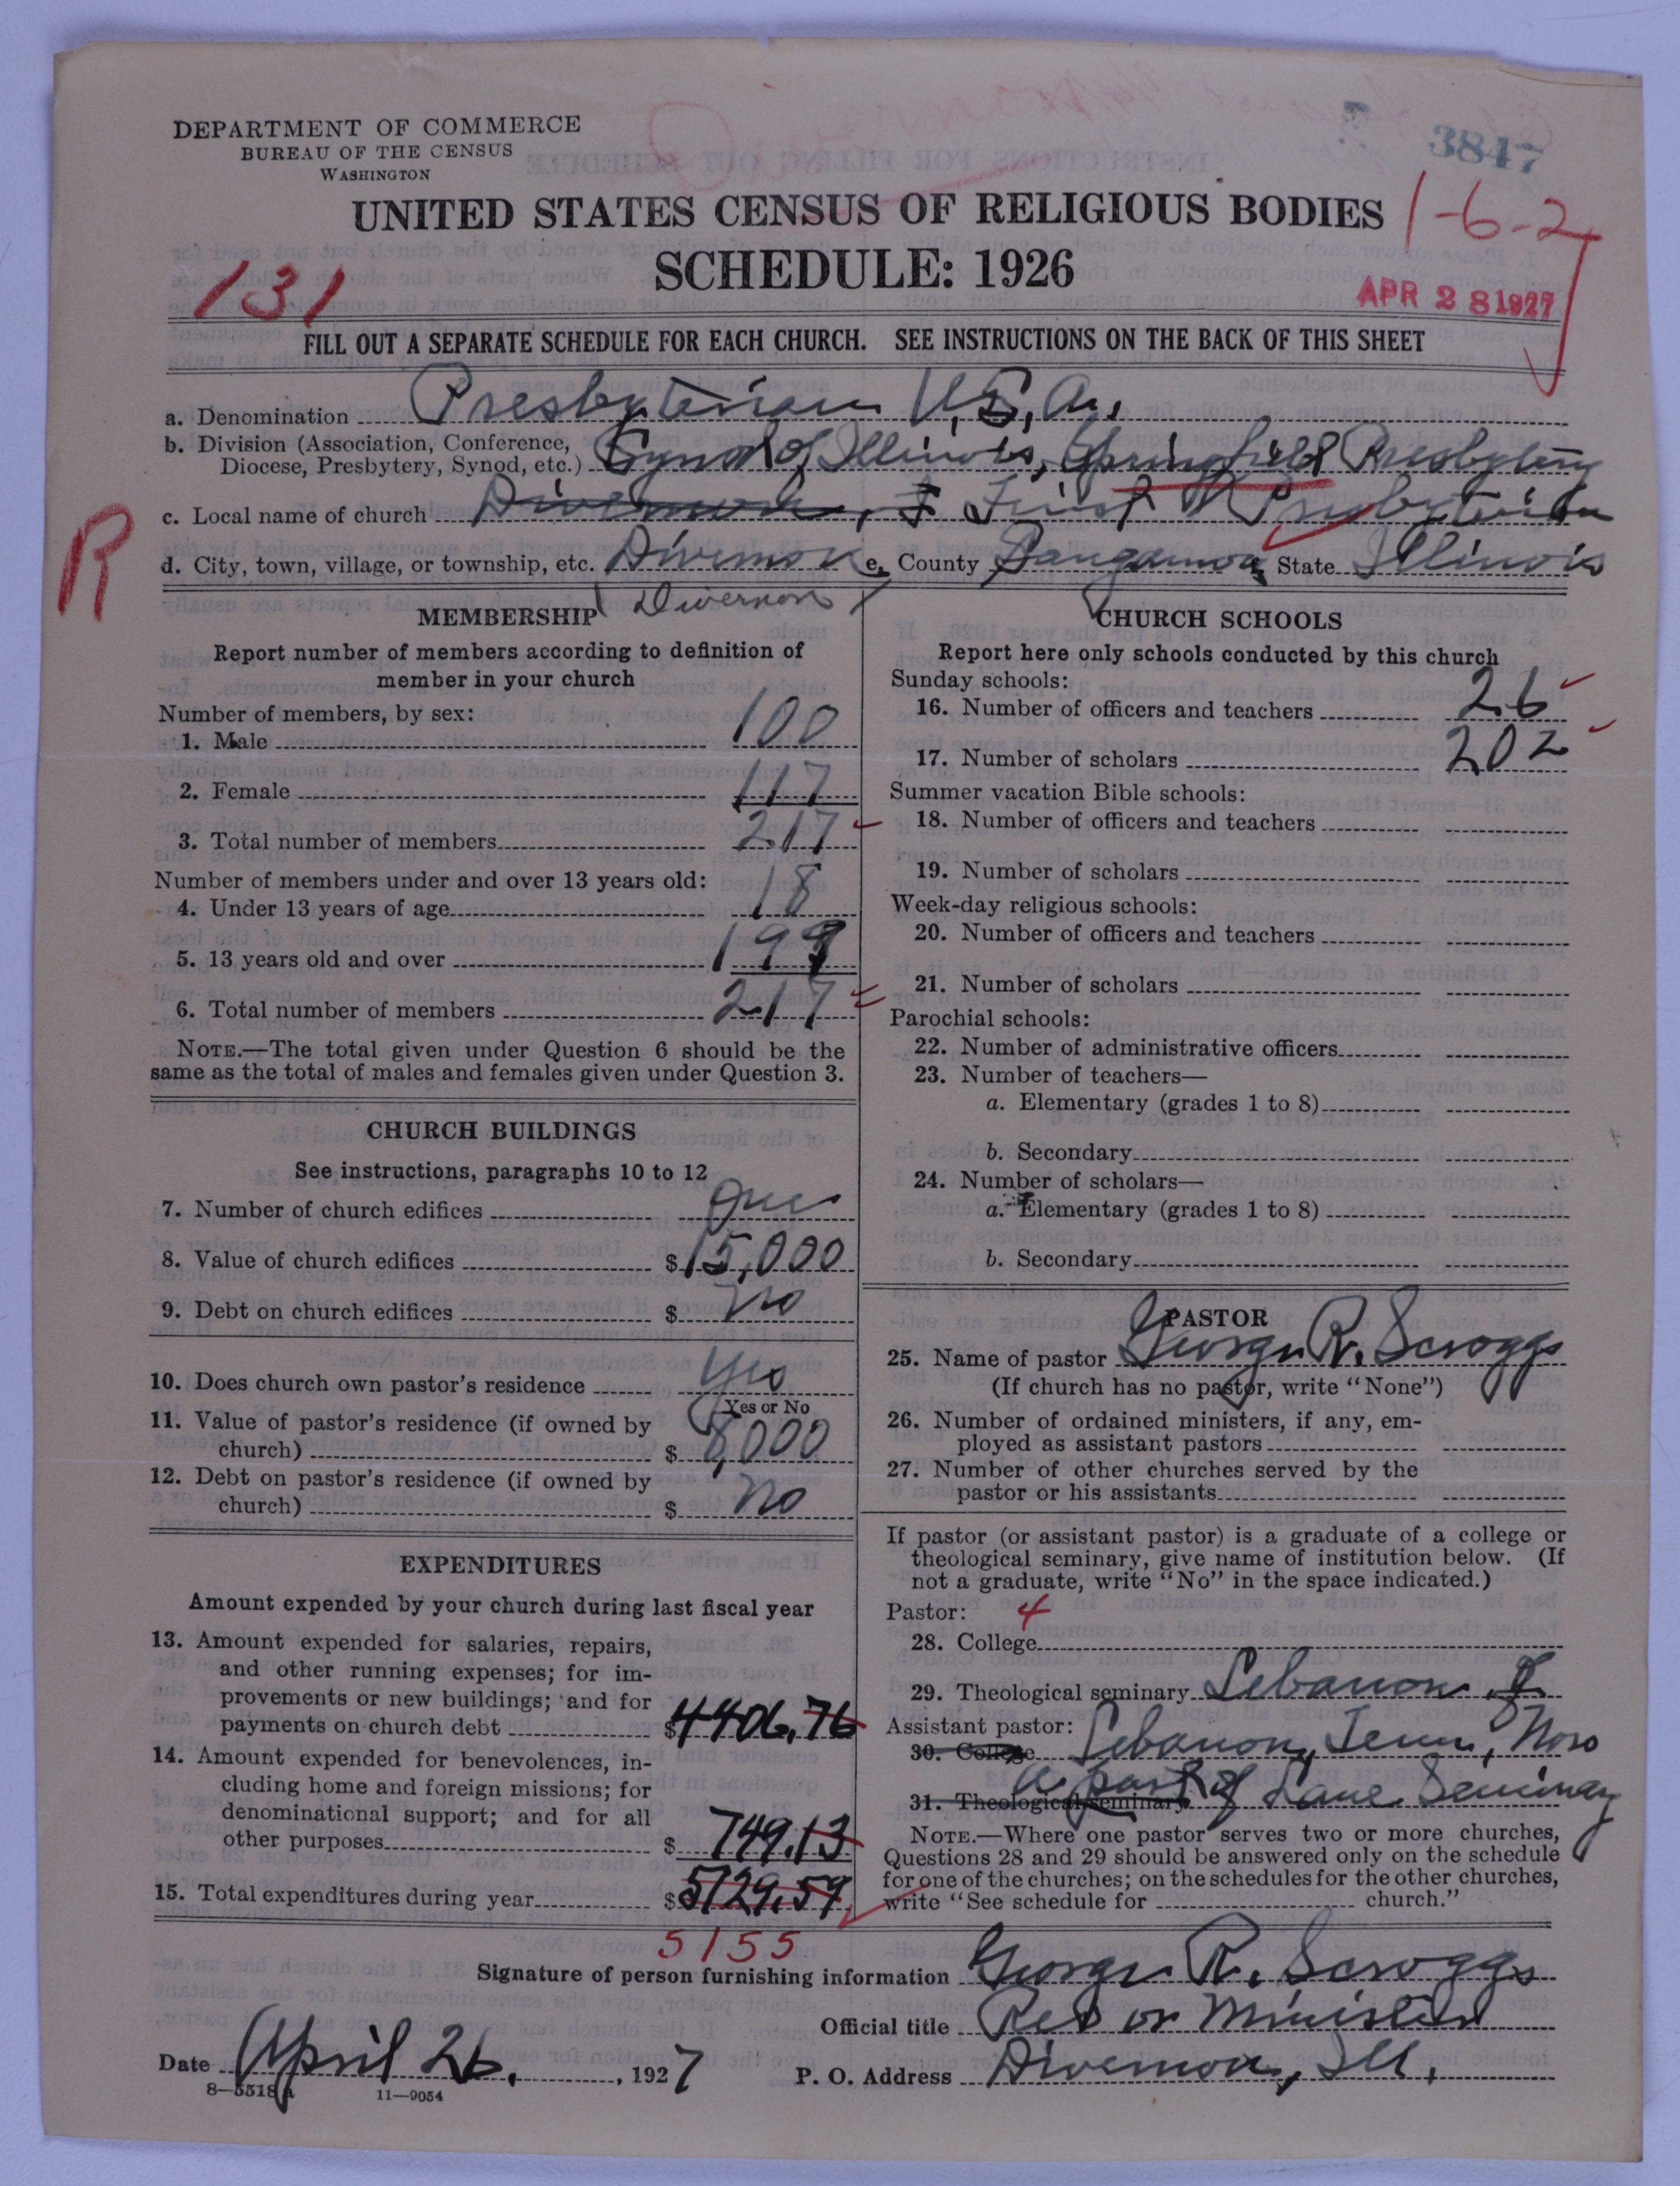 3847
DEPARTMENT OF COMMERCE
BUREAU OF THE CENSUS
WASHINGTON
UNITED STATES CENSUS OF RELIGIOUS BODIES
1-6-27
SCHEDULE: 1926
131
APR 28 1927
FILL OUT A SEPARATE SCHEDULE FOR EACH CHURCH. SEE INSTRUCTIONS ON THE BACK OF THIS SHEET
a. Denomination Presbyterian U.S.A.
b. Division (Association, Conference, Diocese, Presbytery, Synod, etc.) Synod of Illinois, Springfield Presbytery
c. Local name of church Divernon, F First Presbyterian
R
d. City, town, village, or township, etc. Divernon e. County Sangamon State Illinois
Divernon
MEMBERSHIP
Report number of members according to definition of
member in your church
Number of members, by sex:
1. Male 100
2. Female 117
3. Total number of members 217
Number of members under and over 13 years old:
4. Under 13 years of age 18
5. 13 years old and over 199
6. Total number of members 217
NOTE.—The total given under Question 6 should be the
same as the total of males and females given under Question 3.
CHURCH BUILDINGS
See instructions, paragraphs 10 to 12
7. Number of church edifices One
8. Value of church edifices $15,000
9. Debt on church edifices $ No
10. Does church own pastor's residence Yes
Yes or No
11. Value of pastor's residence (if owned by
church) $ 8,000
12. Debt on pastor's residence (if owned by
church) $ No
EXPENDITURES
Amount expended by your church during last fiscal year
13. Amount expended for salaries, repairs,
and other running expenses; for im-
provements or new buildings; and for
payments on church debt $4406.76
14. Amount expended for benevolences, in-
cluding home and foreign missions; for
denominational support; and for all
other purposes $ 749.13
15. Total expenditures during year $5129.59
5155
CHURCH SCHOOLS
Report here only schools conducted by this church
Sunday schools:
16. Number of officers and teachers 26
17. Number of scholars 202
Summer vacation Bible schools:
18. Number of officers and teachers
19. Number of scholars
Week-day religious schools:
20. Number of officers and teachers
21. Number of scholars
Parochial schools:
22. Number of administrative officers
23. Number of teachers—
a. Elementary (grades 1 to 8)
b. Secondary
24. Number of scholars—
a. Elementary (grades 1 to 8)
b. Secondary
PASTOR
25. Name of pastor George R. Scroggs
(If church has no pastor, write "None")
26. Number of ordained ministers, if any, em-
ployed as assistant pastors
27. Number of other churches served by the
pastor or his assistants
If pastor (or assistant pastor) is a graduate of a college or
theological seminary, give name of institution below. (If
not a graduate, write "No" in the space indicated.)
Pastor: 4
28. College
29. Theological seminary Lebanon
Assistant pastor:
30. College Lebanon, Tenn, Now
31. Theological seminary a part of Lane Seminary
NOTE.—Where one pastor serves two or more churches,
Questions 28 and 29 should be answered only on the schedule
for one of the churches; on the schedules for the other churches,
write "See schedule for church."
Signature of person furnishing information George R. Scroggs
Official title Rev or Minister
Date April 26, 1927 P. O. Address Divernon, Ill.
8—5518a 11—9054